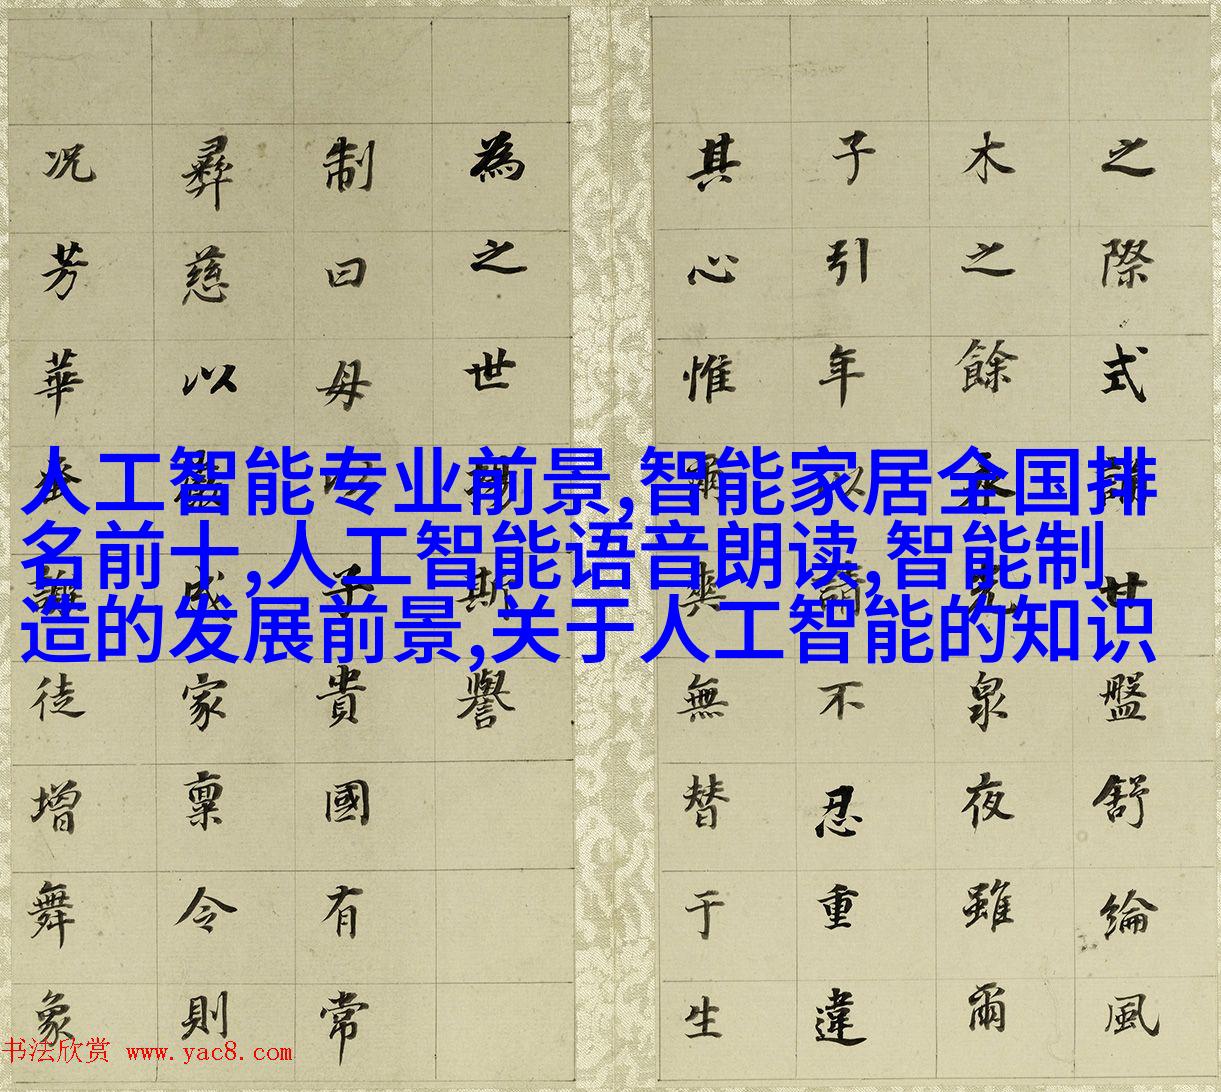 人工智能专业前景,智能家居全国排
名前十,人工智能语音朗读,智能制
造的发展前景,关于人工智能的知识
之際式世盤舒綸風
木之餘泉夜雖爾
子引年以不忍重違
其心惟爾無替于生
為之世斯譽
制曰母以子貴國有常
彝慈以成家稟令則
況芳華徒增舞象
书法欣赏 www.yac8.com